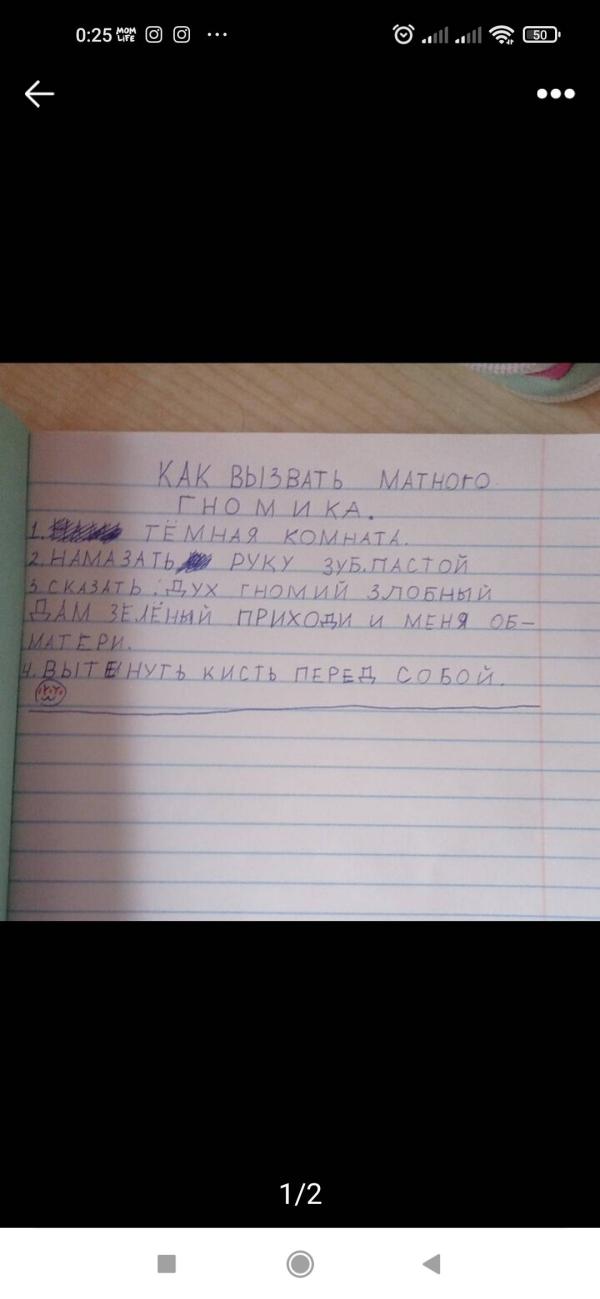 0:25 MOM LIFE ... 50
КАК ВЫЗВАТЬ МАТНОГО
ГНОМИКА.
1. ТЁМНАЯ КОМНАТА.
2. НАМАЗАТЬ РУКУ ЗУБ.ПАСТОЙ
3. СКАЗАТЬ: ДУХ ГНОМИЙ ЗЛОБНЫЙ
ДАМ ЗЕЛЁНЫЙ ПРИХОДИ И МЕНЯ ОБ-
МАТЕРИ.
4. ВЫТЕНУТЬ КИСТЬ ПЕРЕД СОБОЙ.
1/2